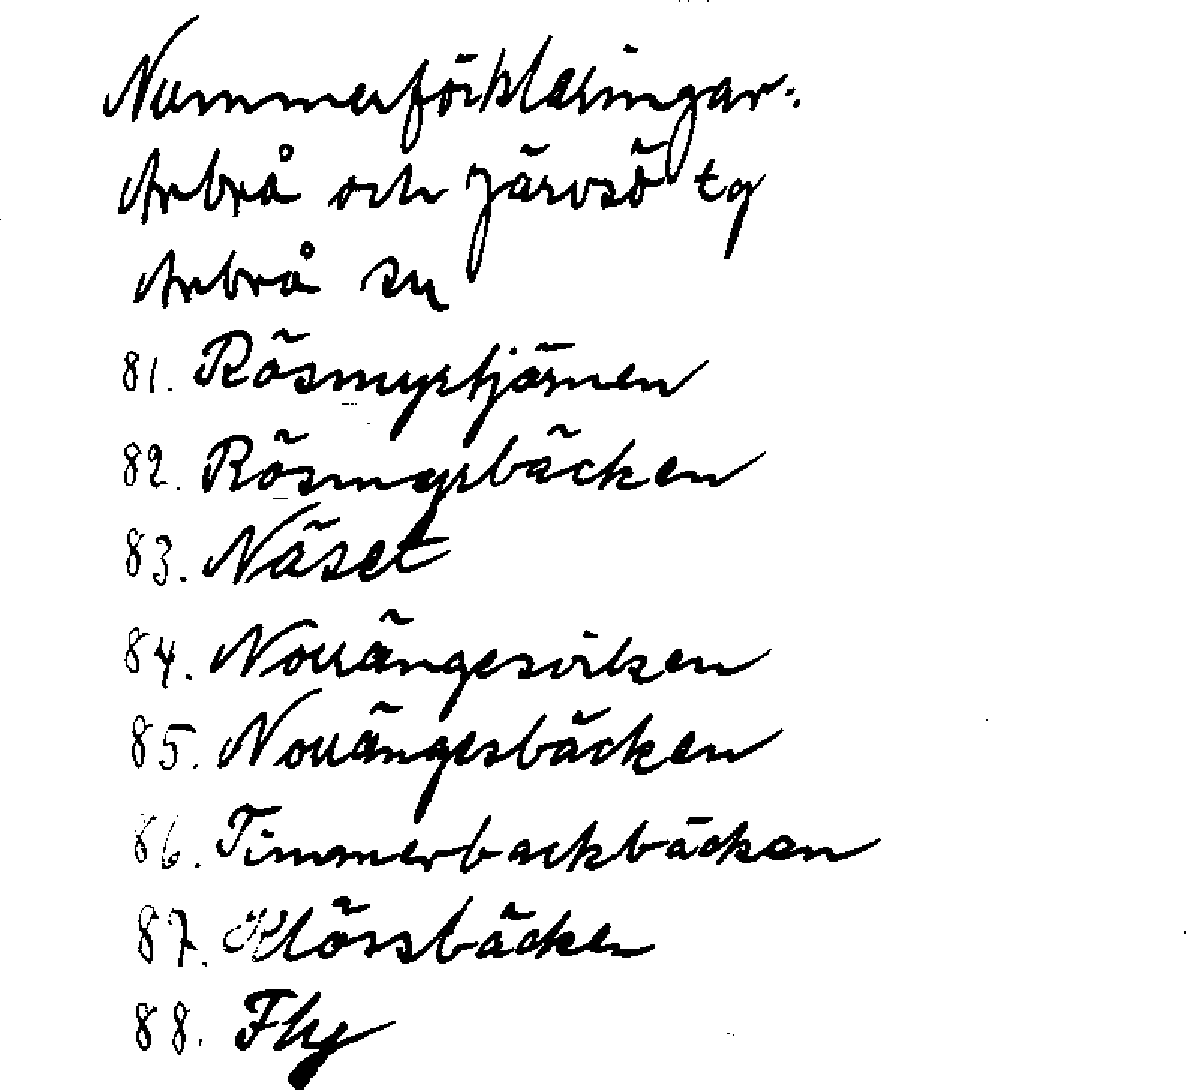 Nummerförklaringar:
Arbrå och Järvsö tg
Arbrå sn
81. Rösmyrtjärnen
82. Rösmyrbäcken
83. Näset
84. Norrängesviken
85. Norrängesbäcken
86. Timmerbackbäcken
87. Klössbäcken
88. Fly